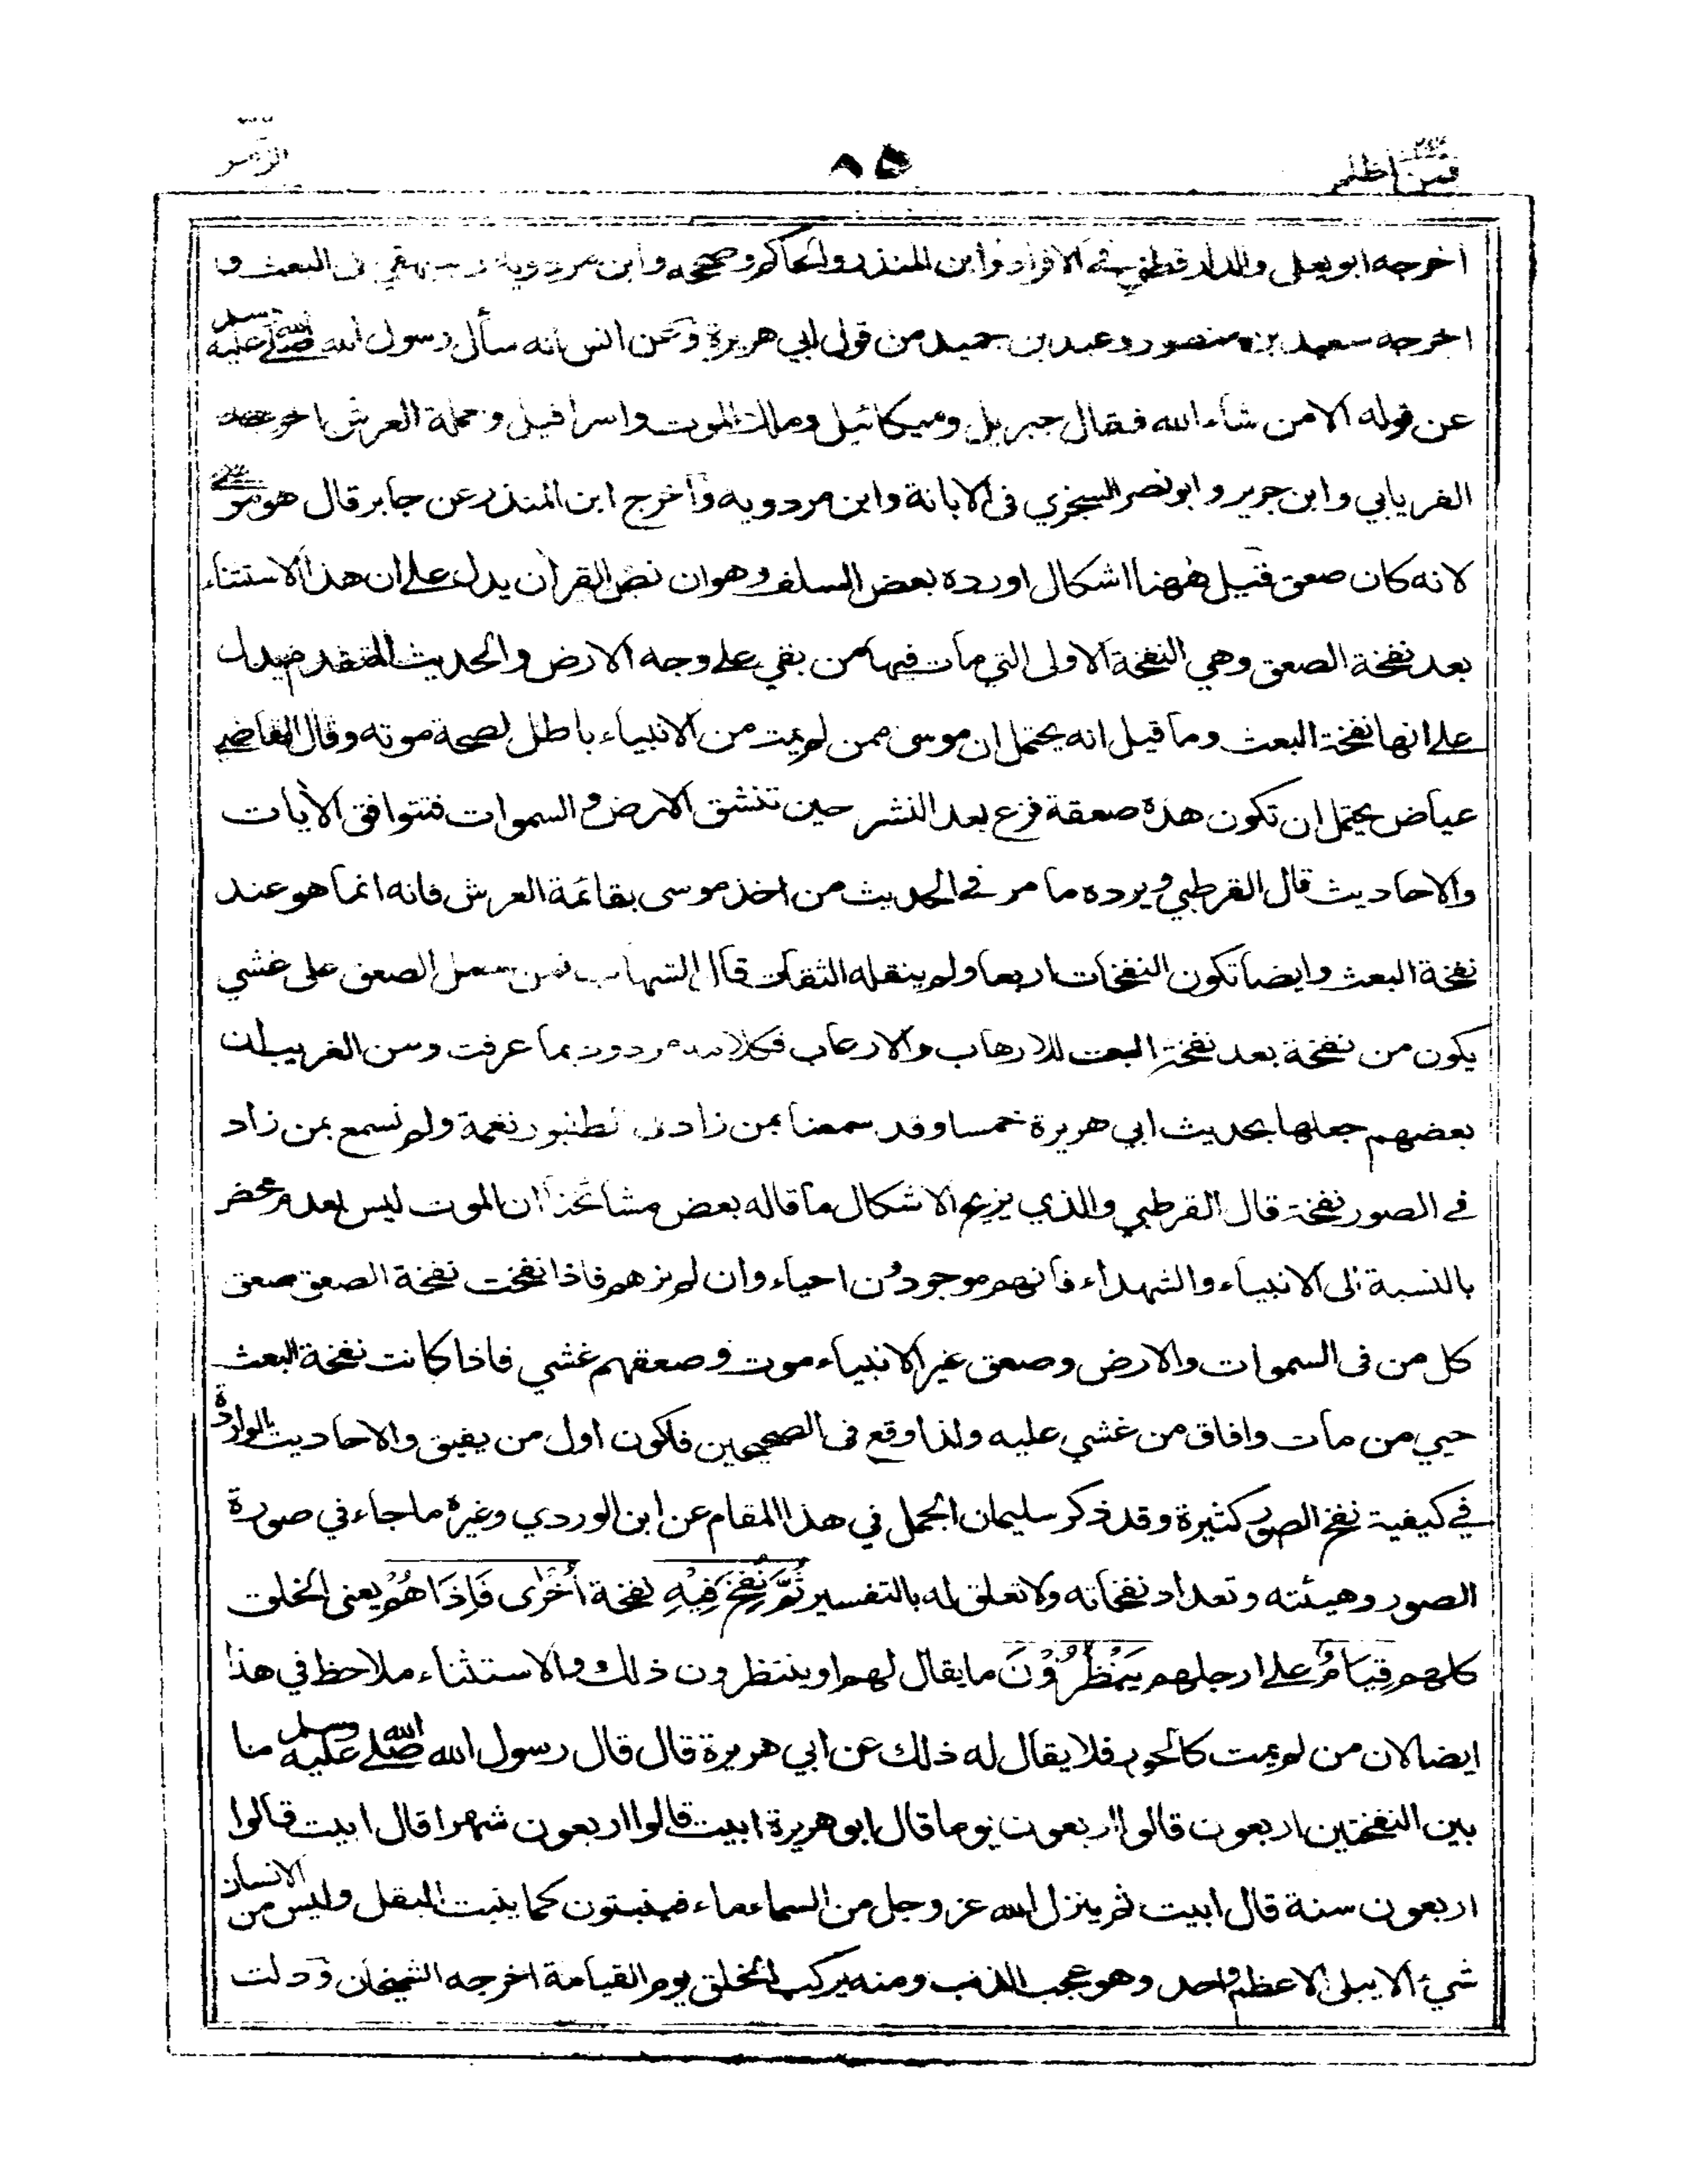 فمن اظلم
٨٥
الزمر
اخرجه ابو يعلى والدار قطني في الافراد وابن المنذر والحاكم وصححه وابن مردويه والبيهقي في البعث و
اخرجه سعيد بن منصور وعبد بن حميد من قول ابي هريرة وعن انس انه سأل رسول الله صلى الله عليه وسلم
عن قوله الا من شاء الله فقال جبريل وميكائيل وملك الموت واسرافيل وحملة العرش اخرجه
الفريابي وابن جرير وابو نصر السجزي في الابانة وابن مردويه واخرج ابن المنذر عن جابر قال هو موسى
لانه كان صعق قبل ههنا اشكال اورده بعض السلف وهو ان نص القرآن يدل على ان هذا الاستثناء
بعد نفخة الصعق وهي النفخة الاولى التي مات فيها من بقي على وجه الارض والحديث المتقدم يدل
على انها نفخة البعث وما قيل انه يحتمل ان موسى ممن لم يمت من الانبياء باطل لصحة موته وقال القاضي
عياض يحتمل ان تكون هذه صعقة فزع بعد النشر حين تنشق الارض والسموات فتتوافق الآيات
والاحاديث قال القرطبي ويرده ما مر في الحديث من اخذ موسى بقائمة العرش فانه انما هو عند
نفخة البعث وايضا تكون النفخات اربعا ولم ينقله الثقات قال الشهاب فمن حمل الصعق على غشي
يكون من نفخة بعد نفخة البعث للارهاب والارعاب فكلامه مردود بما عرفت ومن الغريب ان
بعضهم جعلها بحديث ابي هريرة خمسا وقد سمعنا بمن زاد في الطنبور نغمة ولم نسمع بمن زاد
في الصور نفخة قال القرطبي والذي يزيح الاشكال ما قاله بعض مشائخنا ان الموت ليس بعدم محض
بالنسبة الى الانبياء والشهداء فانهم موجودون احياء وان لم نرهم فاذا نفخت نفخة الصعق صعق
كل من في السموات والارض وصعق غير الانبياء موت وصعقهم غشي فاذا كانت نفخة البعث
حيي من مات وافاق من غشي عليه ولذا وقع في الصحيحين فاكون اول من يفيق والاحاديث الواردة
في كيفية نفخ الصور كثيرة وقد ذكر سليمان الجمل في هذا المقام عن ابن الوردي وغيره ما جاء في صورة
الصور وهيئته وتعداد نفخاته ولا تعلق له بالتفسير ثُمَّ نُفِخَ فِيْهِ نفخة اُخْرٰى فَاِذَا هُمْ يعني الخلق
كلهم قِيَامٌ على ارجلهم يَنْظُرُوْنَ ما يقال لهم او ينتظرون ذلك والاستثناء ملاحظ في هذا
ايضا لان من لم يمت كالحور فلا يقال له ذلك عن ابي هريرة قال قال رسول الله صلى الله عليه وسلم ما
بين النفختين اربعون قالوا اربعون يوما قال ابو هريرة ابيت قالوا اربعون شهرا قال ابيت قالوا
اربعون سنة قال ابيت ثم ينزل الله عز وجل من السماء ماء فينبتون كما ينبت البقل وليس من الانسان
شيء الا يبلى الا عظم واحد وهو عجب الذنب ومنه يركب الخلق يوم القيامة اخرجه الشيخان ودلت